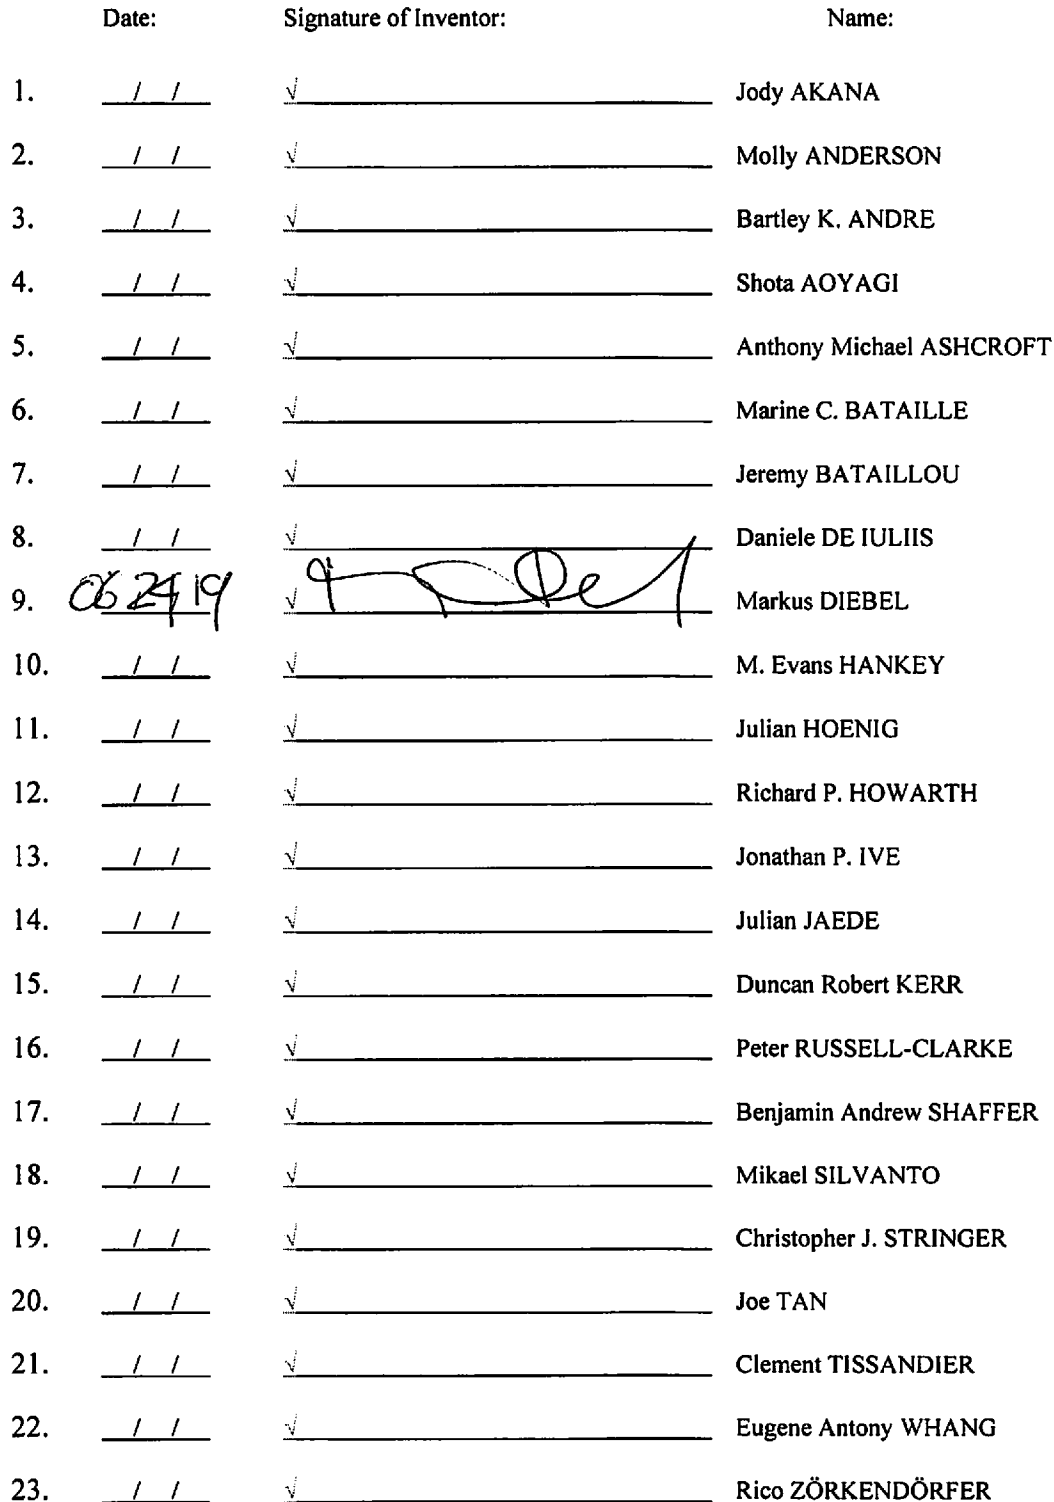 Date: Signature of Inventor: Name:
1. / / √ Jody AKANA
2. / / √ Molly ANDERSON
3. / / √ Bartley K. ANDRE
4. / / √ Shota AOYAGI
5. / / √ Anthony Michael ASHCROFT
6. / / √ Marine C. BATAILLE
7. / / √ Jeremy BATAILLOU
8. / / √ Daniele DE IULIIS
9. 06 24 19 √ Markus DIEBEL
10. / / √ M. Evans HANKEY
11. / / √ Julian HOENIG
12. / / √ Richard P. HOWARTH
13. / / √ Jonathan P. IVE
14. / / √ Julian JAEDE
15. / / √ Duncan Robert KERR
16. / / √ Peter RUSSELL-CLARKE
17. / / √ Benjamin Andrew SHAFFER
18. / / √ Mikael SILVANTO
19. / / √ Christopher J. STRINGER
20. / / √ Joe TAN
21. / / √ Clement TISSANDIER
22. / / √ Eugene Antony WHANG
23. / / √ Rico ZÖRKENDÖRFER